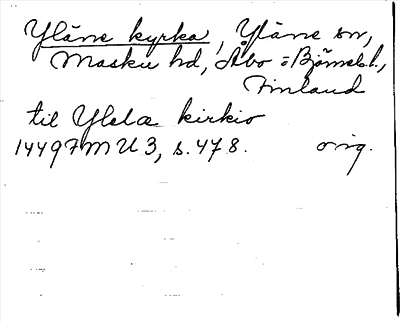 Yläne kyrka, Yläne sn,
Masku hd, Åbo-Björneb.l.,
Finland
til Ylela kirkio
1449 FMU 3, s. 478. orig.